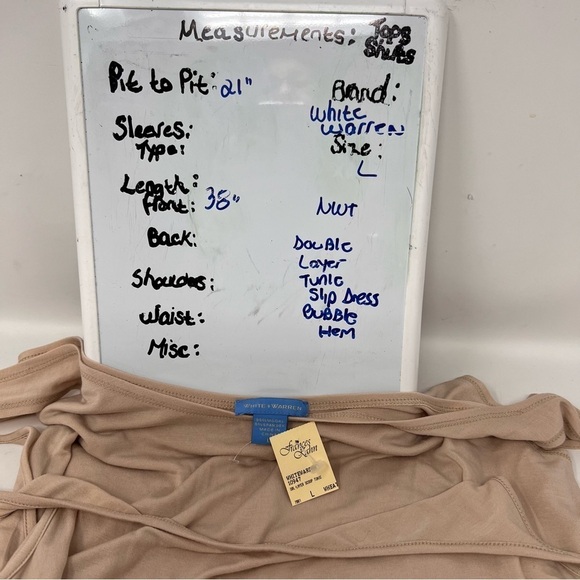 Measurements: Tops
Shirts
Pit to Pit: 21"
Brand:
White
Warren
Sleeves:
Type:
Size:
L
Length:
Front: 38"
NWT
Back:
Double
Layer
Tunic
Slip Dress
Bubble
Hem
Shoulders:
Waist:
Misc:
WHITE + WARREN
Frances
Kahn
L